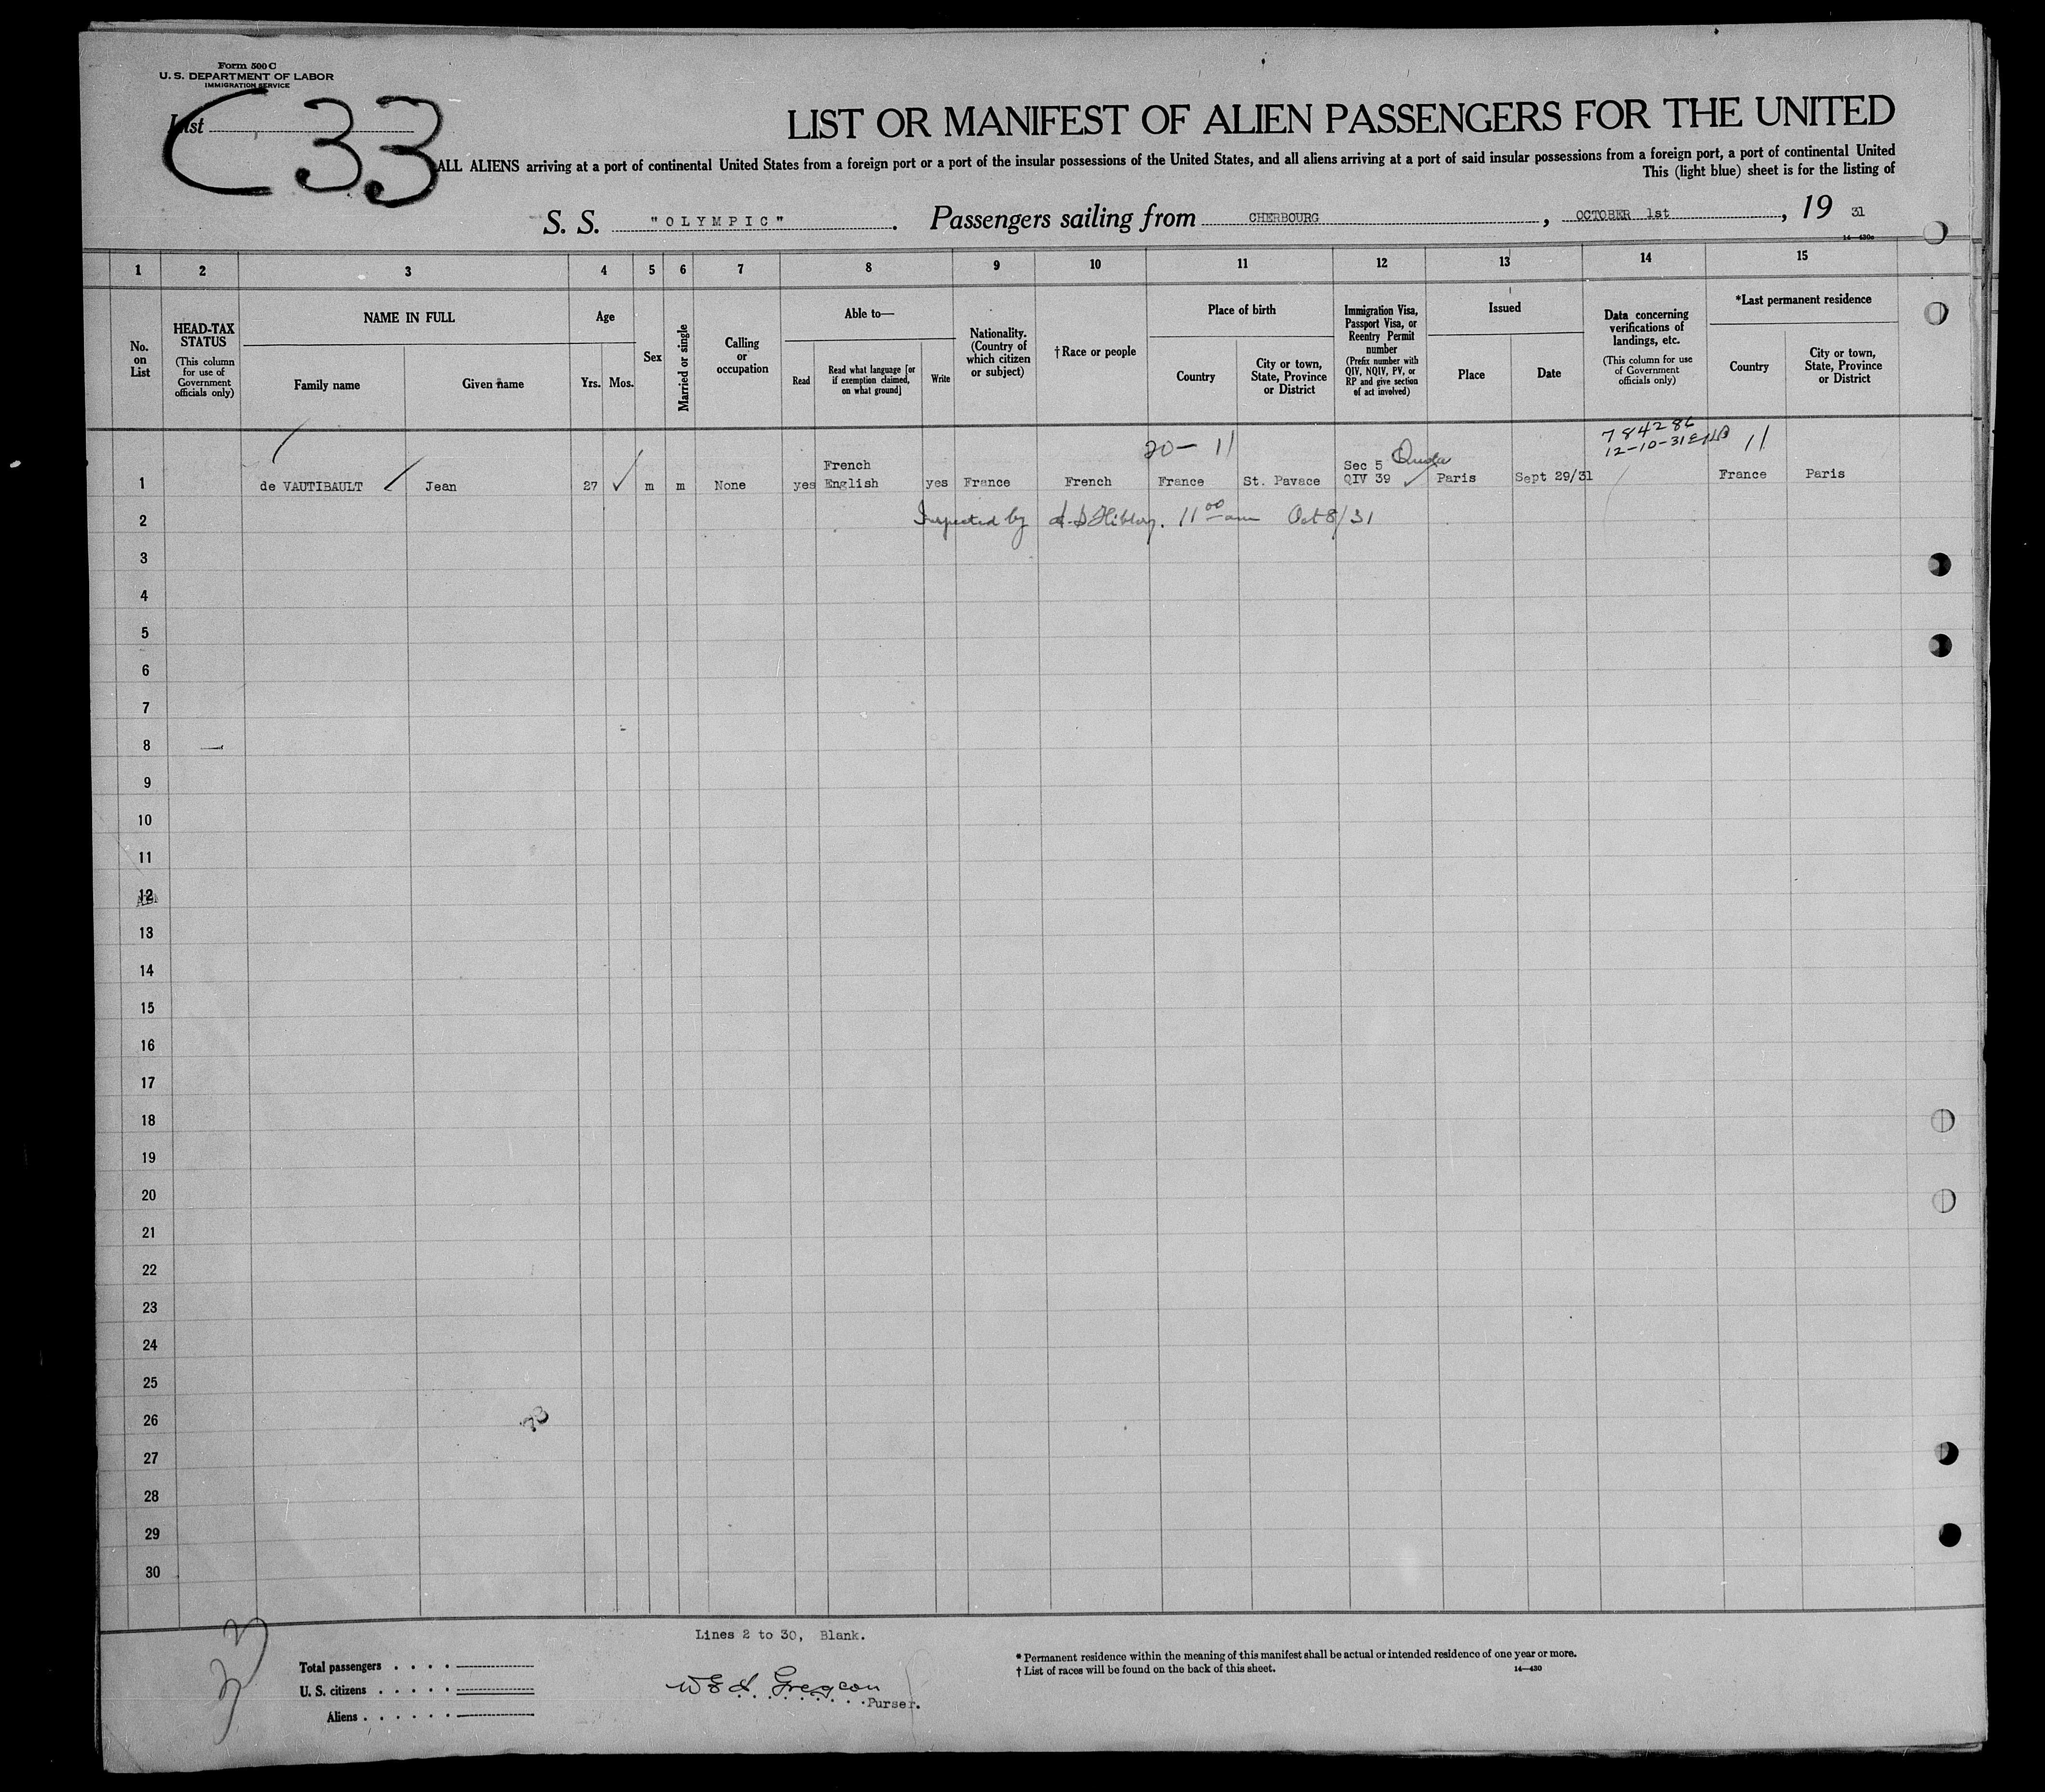 Form 500 C
U. S. DEPARTMENT OF LABOR
IMMIGRATION SERVICE
List
C 33
LIST OR MANIFEST OF ALIEN PASSENGERS FOR THE UNITED
ALL ALIENS arriving at a port of continental United States from a foreign port or a port of the insular possessions of the United States, and all aliens arriving at a port of said insular possessions from a foreign port, a port of continental United
This (light blue) sheet is for the listing of
S. S. "OLYMPIC". Passengers sailing from CHERBOURG, OCTOBER 1st, 19 31
1 2 3 4 5 6 7 8 9 10 11 12 13 14 15
No. on List
HEAD-TAX STATUS
(This column for use of Government officials only)
NAME IN FULL
Family name Given name
Age
Yrs. Mos.
Sex
Married or single
Calling or occupation
Able to—
Read
Read what language [or if exemption claimed, on what ground]
Write
Nationality. (Country of which citizen or subject)
† Race or people
Place of birth
Country
City or town, State, Province or District
Immigration Visa, Passport Visa, or Reentry Permit number
(Prefix number with QIV, NQIV, PV, or RP and give section of act involved)
Issued
Place Date
Data concerning verifications of landings, etc.
(This column for use of Government officials only)
*Last permanent residence
Country
City or town, State, Province or District
784286
12-10-31
20- 11
11
French Sec 5
1 de VAUTIBAULT Jean 27 m m None yes English yes France French France St. Pavace QIV 39 Paris Sept 29/31 France Paris
2 Inspected by 11 00 am Oct 8/31
3
4
5
6
7
8
9
10
11
12
13
14
15
16
17
18
19
20
21
22
23
24
25
26
27
28
29
30
Lines 2 to 30, Blank.
Total passengers
U. S. citizens
Aliens
Purser.
* Permanent residence within the meaning of this manifest shall be actual or intended residence of one year or more.
† List of races will be found on the back of this sheet.
14—430